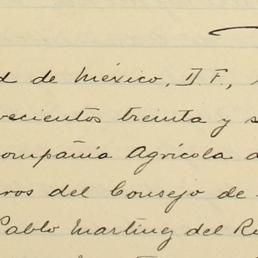 d de México, D.F., 
vecientos treinta y s
ompañía Agrícola d
ros del Consejo de
Pablo Martínez del R